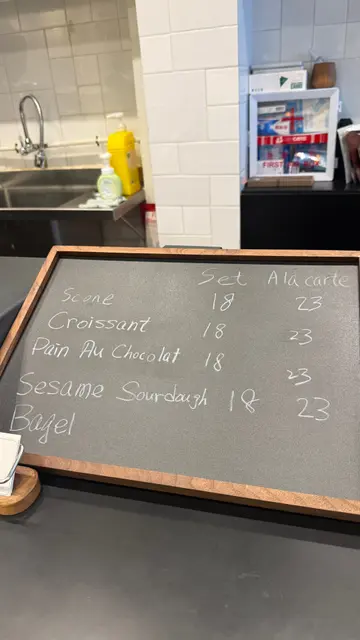 Set A lá carte
Scone 18 23
Croissant 18 23
Pain Au Chocolat 18 23
Sesame Sourdough 18 23
Bagel
FIRST